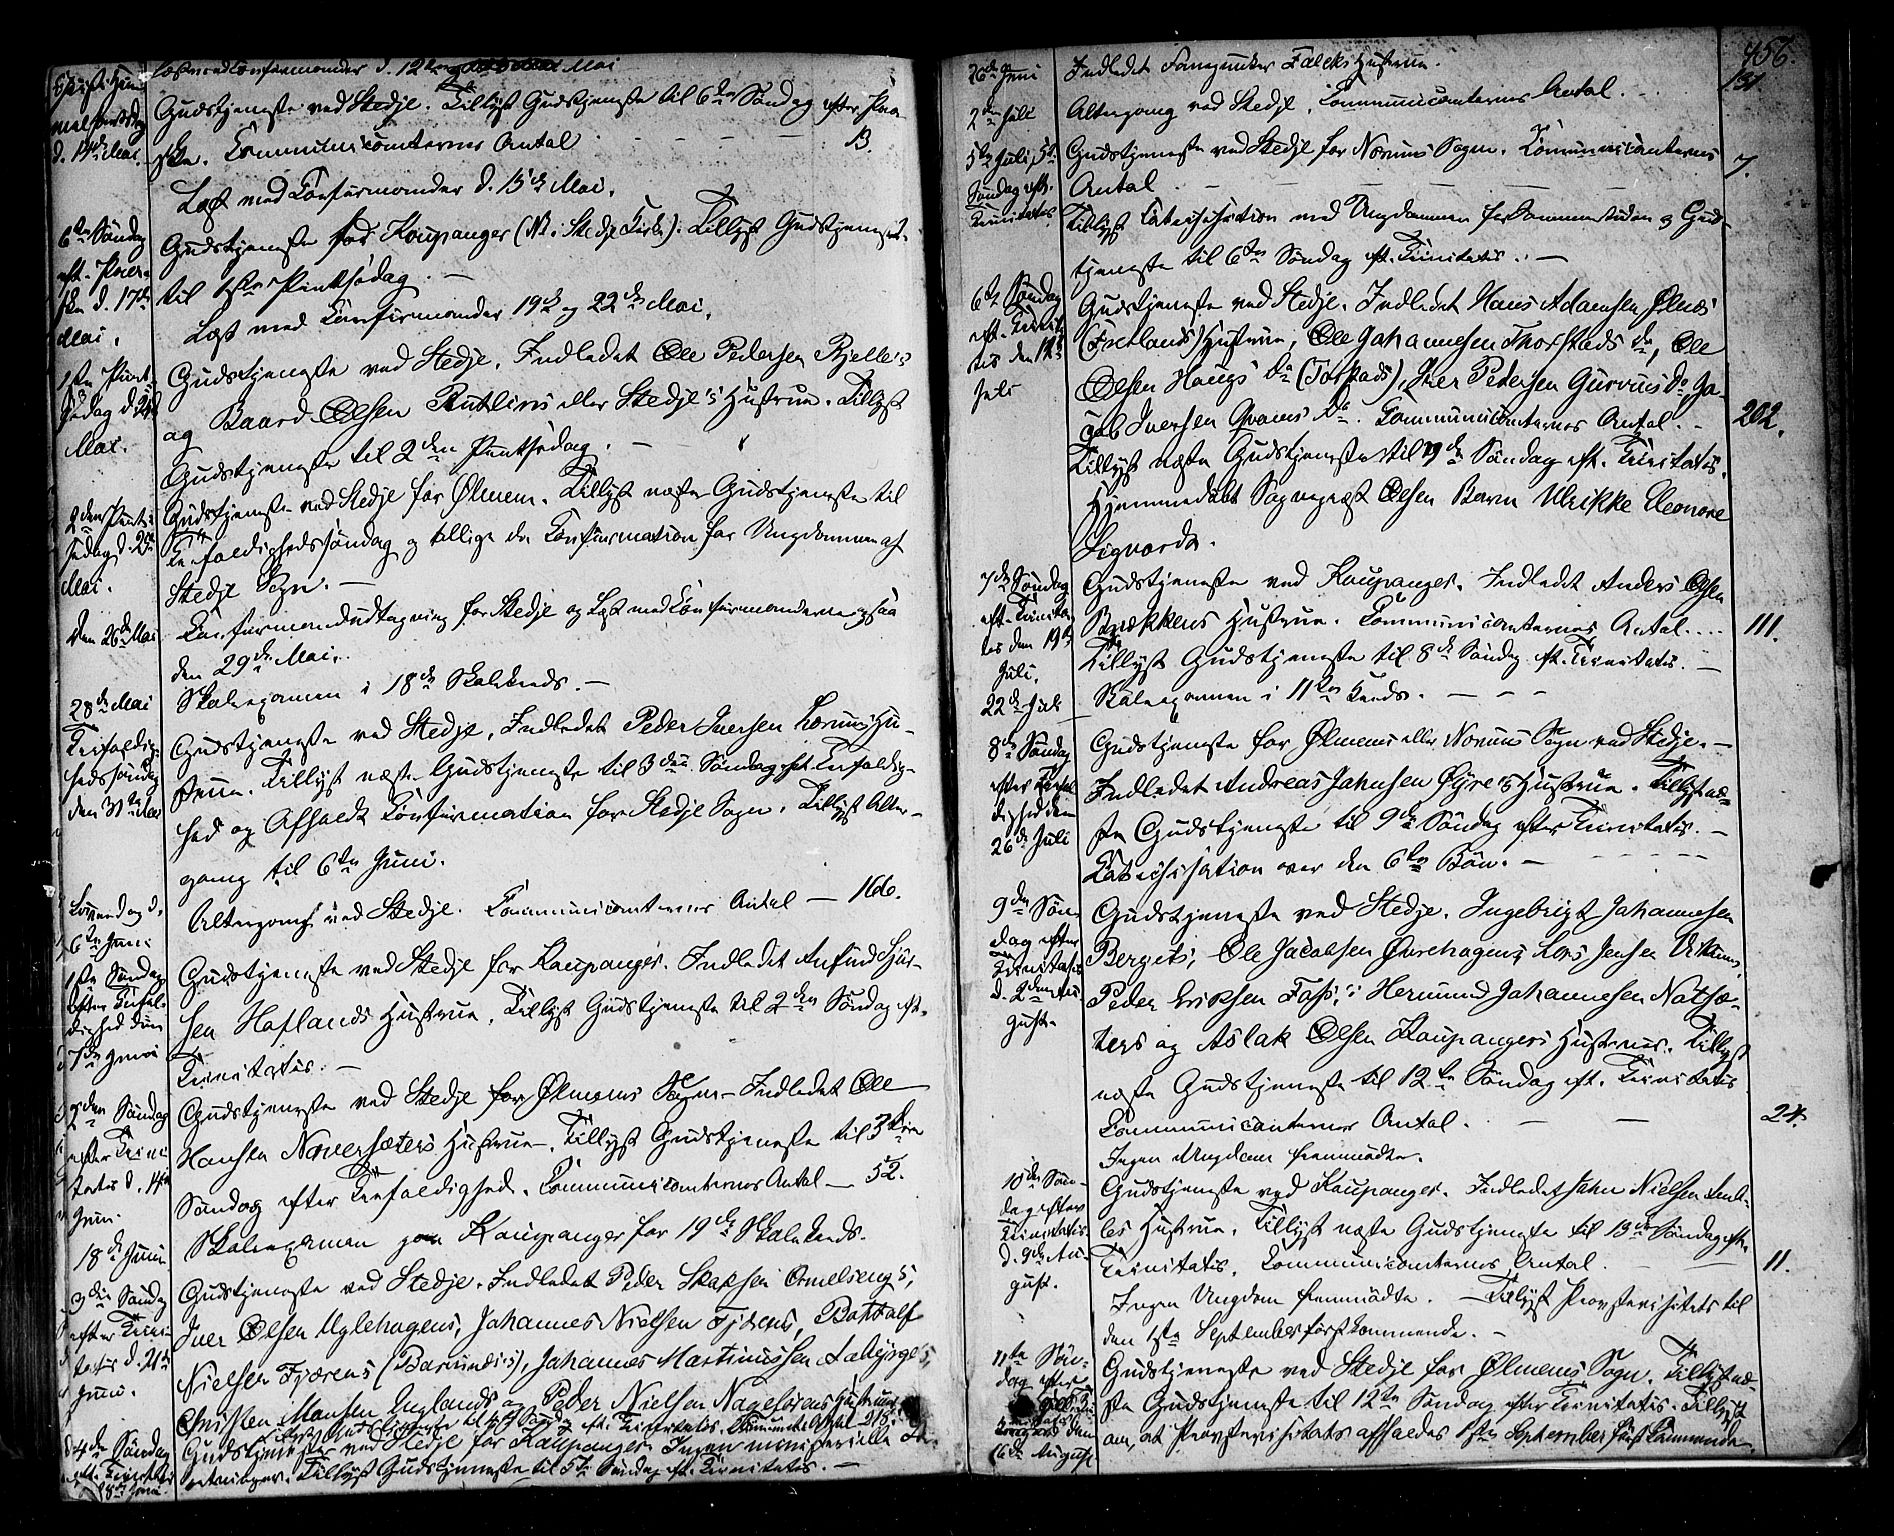 Læst med Confirmander d. 12te Mai
Christi Himmelfartsdag d. 14de Mai. Gudstjeneste ved Stedje. Tillyst Gudstjeneste til 6te Søndag efter Paa-
ske. Communicanternes Antal — — — 13.
Læst med Confirmander d. 15de Mai.
6te Søndag eft. Paaske d. 17de Mai. Gudstjeneste for Kaupanger (NB. i Stedje Kirke). Tillyst Gudstjeneste
til 1ste Pintsedag. —
Læst med Confirmander 19de og 22de Mai.
1ste Pintsedag d. 24de Mai. Gudstjeneste ved Stedje. Indledet Ole Pedersen Bjelle's
og Baard Olsen Rutlins eller Stedje's Hustrue. Tillyst
Gudstjeneste til 2den Pintsedag. —
2den Pintsedag d. 25de Mai. Gudstjeneste ved Stedje for Ølmem. Tillyst næste Gudstjeneste til
Trefoldighedssøndag og tillige da Confirmation for Ungdommen af
Stedje Sogn. —
Den 26de Mai Confirmandudtagning for Stedje og Læst med Confirmanderne ogsaa
den 29de Mai.
28de Mai Skoleexamen i 18de Skolekreds. —
Trefoldighedssøndag den 31te Mai Gudstjeneste ved Stedje. Indledet Peder Iversen Lorums Hu-
strue. Tillyst næste Gudstjeneste til 3die Søndag eft. Trefoldig-
hed og Afholdt Confirmation for Stedje Sogn. Tillyst Alter-
gang til 6te Juni.
Løverdag d. 6te Juni Altergang ved Stedje. Communicanternes Antal — 166.
1ste Søndag efter Trefoldighed den 7de Juni Gudstjeneste ved Stedje for Kaupanger. Indledet Anfind Sjur-
sen Haflands Hustrue. Tillyst Gudstjeneste til 2den Søndag eft.
Trinitatis. —
2den Søndag efter Trinitatis d. 14de Juni. Gudstjeneste ved Stedje for Ølmems Sogn — Indledet Ole
Hansen Navarsæters Hustrue. Tillyst Gudstjeneste til 3die
Søndag efter Trefoldighed. Communicanternes Antal — 52.
18de Juni Skoleexamen paa Kaupanger for 19de Skolekreds.
3die Søndag efter Trinitatis d. 21de Juni. Gudstjeneste ved Stedje. Indledet Peder
Iver Olsen Uglehagens, Johannes Nielsen Fjærens, Botholf
Nielsen Fjærens, Johannes Martinussen
Christen Hansen og Peder Nielsen Hustruer
Tillyst Gudstjeneste til 4de Søndag eft. Trinitatis.
4de Søndag eft. Trinitatis 28de Juni. Gudstjeneste ved Stedje for Kaupanger. Ingen ministerielle For-
retninger. Tillyst Gudstjeneste til 5te Søndag eft. Trinitatis. —
456.
26de Juni Indledet Falcks Hustrue.
2den Juli Altergang ved Stedje. Communicanternes Antal . . . 131
5te Juli, 5te Søndag eft. Trinitatis Gudstjeneste ved Stedje for Norums Sogn. Communicanternes
Antal — — — — — 7.
Tillyst Catechisation med Ungdommen og Guds-
tjeneste til 6te Søndag eft. Trinitatis. —
6te Søndag eft. Trinitatis den 12te Juli Gudstjeneste ved Stedje. Indledet Hans Adamsen Ølnes
(Fretlands) Hustrue, Ole Johannesen Thorstads do, Ole
Olsen Haugs do (Torstads), Iver Pedersen Gurvins do, Ja-
cob Iversen Qvams do. Communicanternes Antal. — 202.
Tillyst næste Gudstjeneste til 9de Søndag eft. Trinitatis.
Hjemmedøbt Sognepræst Olsen Barn Ulrikke Eleonore
Sigvarda.
7de Søndag eft. Trinitatis den 19de Juli. Gudstjeneste ved Kaupanger. Indledet Anders Olsen
Brækkens Hustrue. Communicanternes Antal . . . . 111.
Tillyst Gudstjeneste til 8de Søndag eft. Trinitatis. —
22de Juli Skoleexamen i 11te Kreds. — — —
8de Søndag efter Trefoldighed den 26de Juli Gudstjeneste for Ølmems eller Norums Sogn ved Stedje. —
Indledet Andreas Johnsen Øyre's Hustrue. Tillyst næ-
ste Gudstjeneste til 9de Søndag efter Trinitatis. —
Catechisation over den 6te Bøn. —
9de Søndag efter Trinitatis d. 2den August. Gudstjeneste ved Stedje. Ingebrigt Johannesen
Bergets, Ole Jacobsen Øvrehagens, Lars Jensen
Peder Eriksen Foss's, Hermund Johannesen Natsæ-
ters og Aslak Olsen Kaupangers Hustruer. Tillyst
næste Gudstjeneste til 12te Søndag eft. Trinitatis
Communicanternes Antal. — — 24.
Ingen Ungdom fremmødte.
10de Søndag efter Trinitatis d. 9de August. Gudstjeneste ved Kaupanger. Indledet John Nielsen Amb-
les Hustrue. Tillyst næste Gudstjeneste til 13de Søndag eft.
Trinitatis. Communicanternes Antal. — 11.
Ingen Ungdom fremmødte. — Tillyst Provstevisitats til
den 1ste September førstkommende. —
11te Søndag efter Trinitatis den 16de August. Gudstjeneste ved Stedje for Ølmems Sogn. Tillyst næ-
ste Gudstjeneste til 12te Søndag efter Trinitatis. Tillyst
om, at Provstevisitats afholdes 1ste September førstkommende.